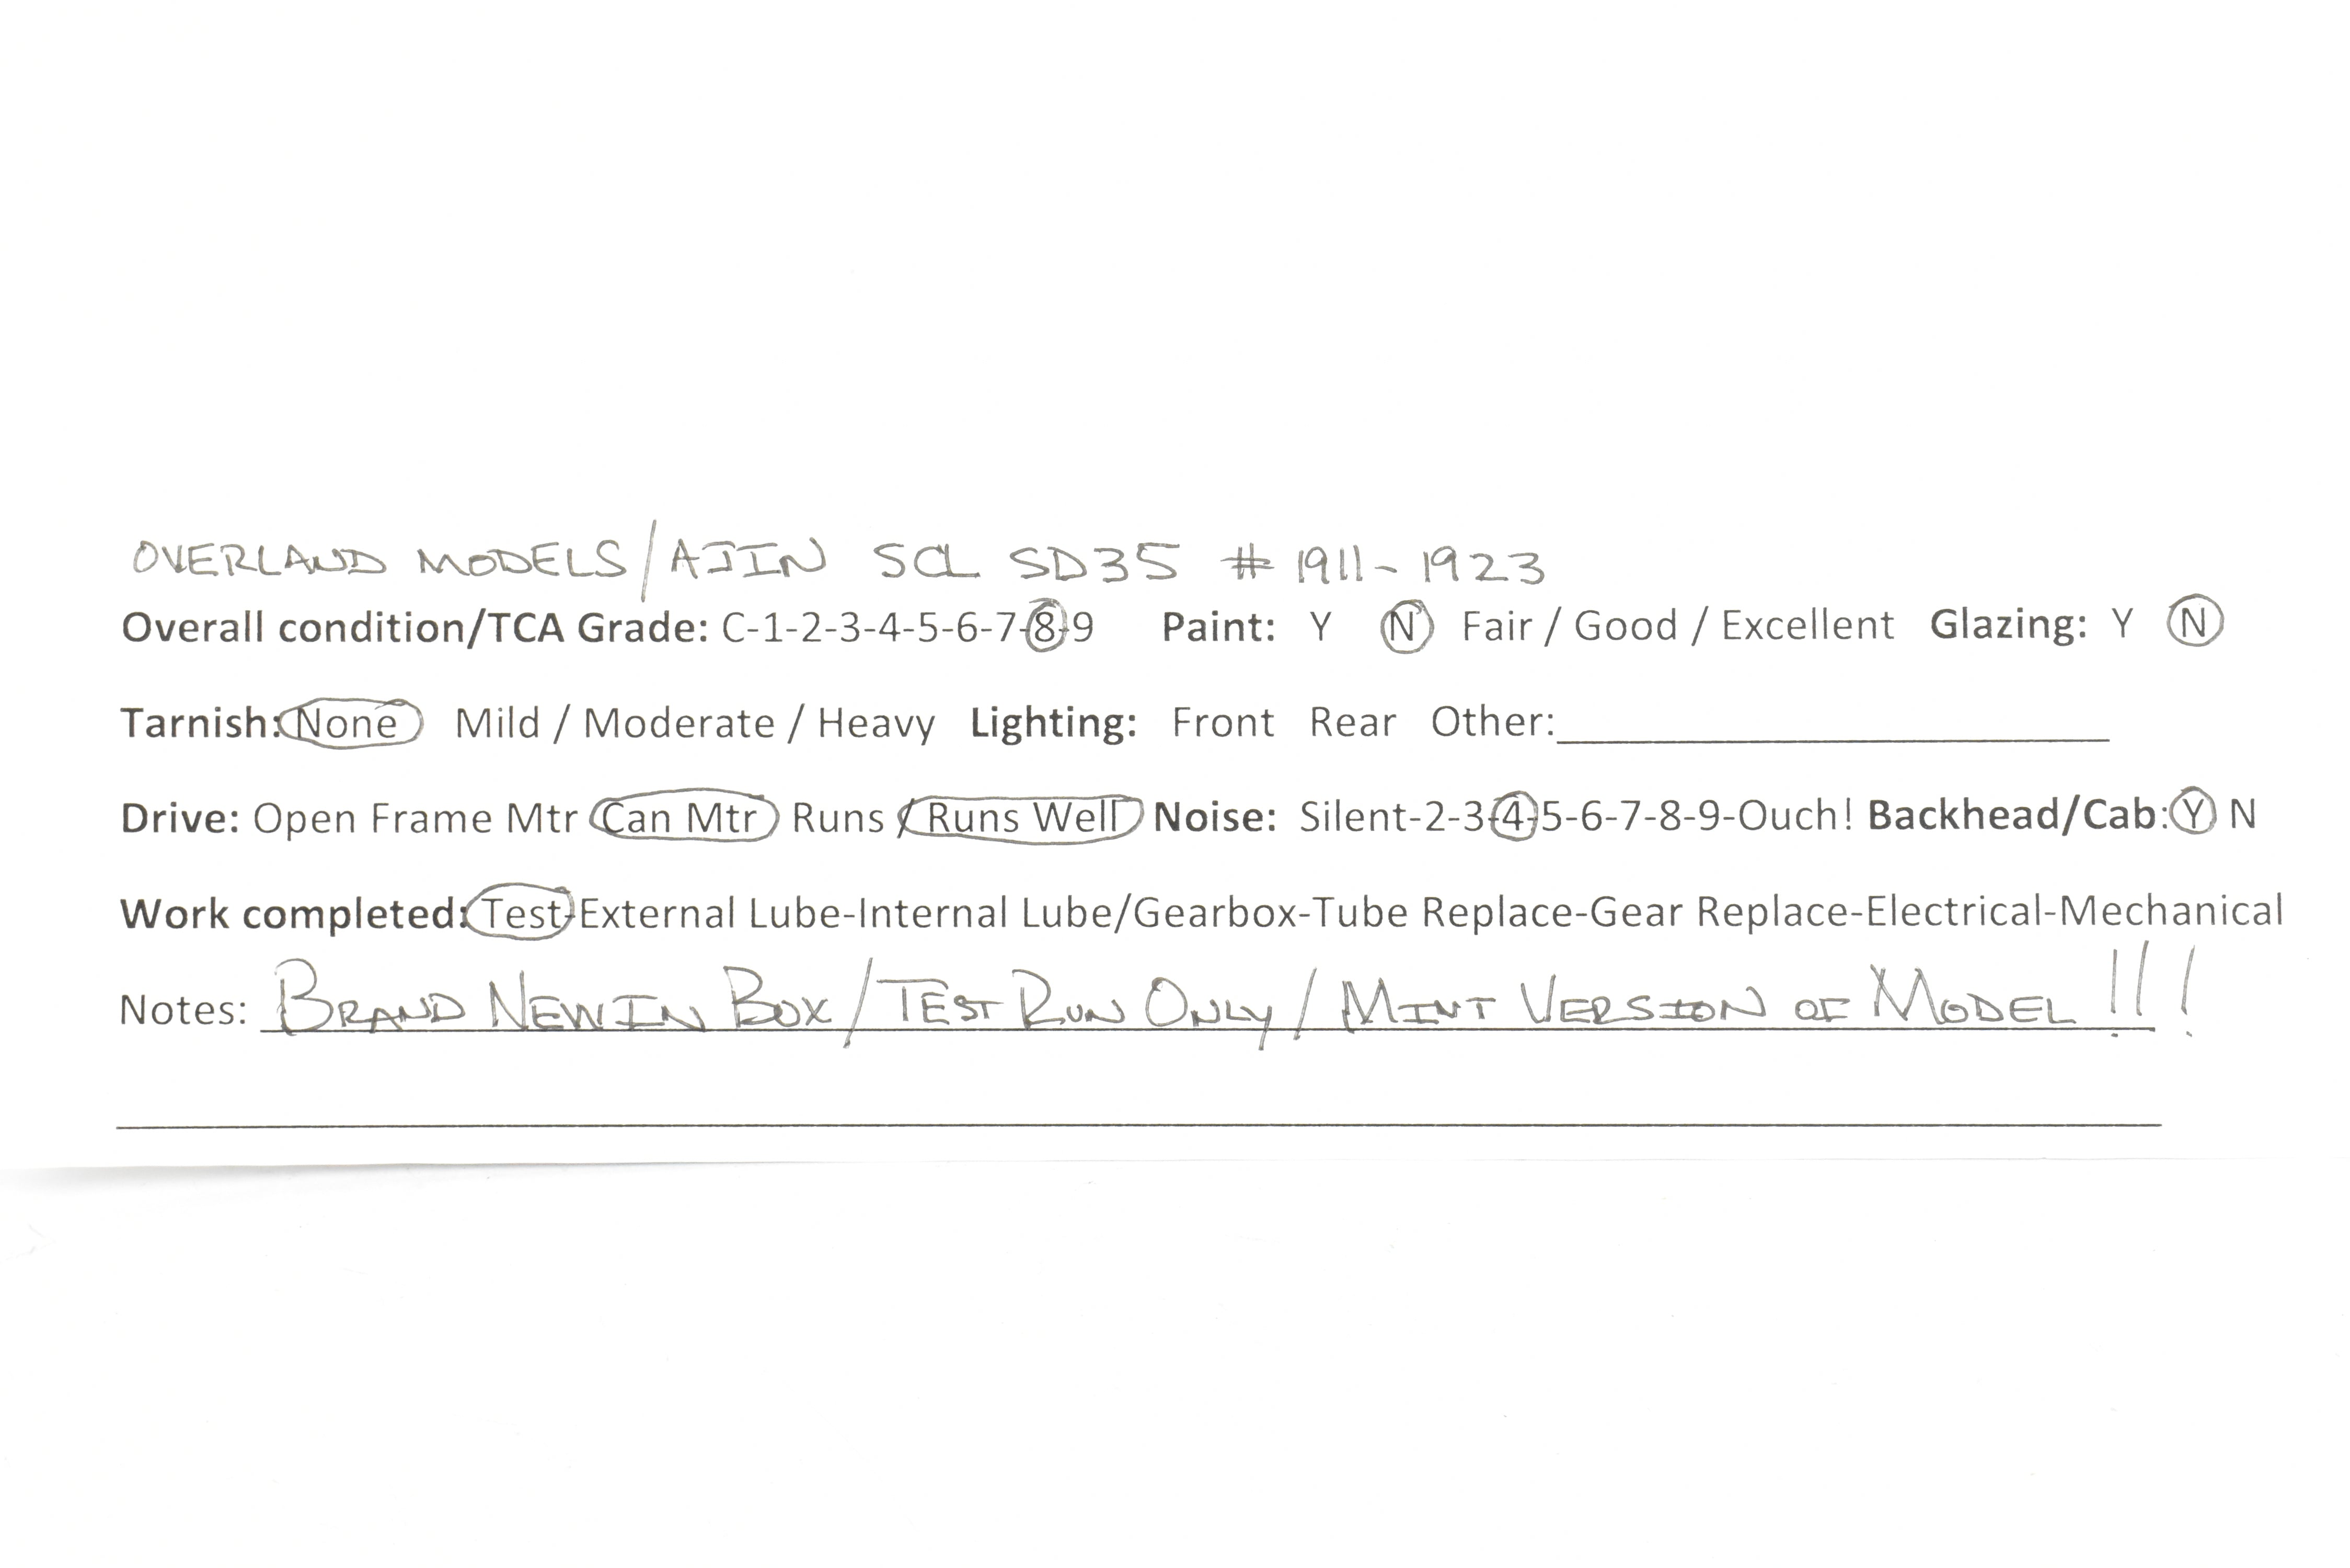 OVERLAND MODELS/AJIN SCL SD35 # 1911-1923
Overall condition/TCA Grade: C-1-2-3-4-5-6-7-8-9 Paint: Y N Fair / Good / Excellent Glazing: Y N
Tarnish: None Mild / Moderate / Heavy Lighting: Front Rear Other:
Drive: Open Frame Mtr Can Mtr Runs / Runs Well Noise: Silent-2-3-4-5-6-7-8-9-Ouch! Backhead/Cab: Y N
Work completed: Test-External Lube-Internal Lube/Gearbox-Tube Replace-Gear Replace-Electrical-Mechanical
Notes: BRAND NEW IN BOX/TEST RUN ONLY/MINT VERSION OF MODEL!!!